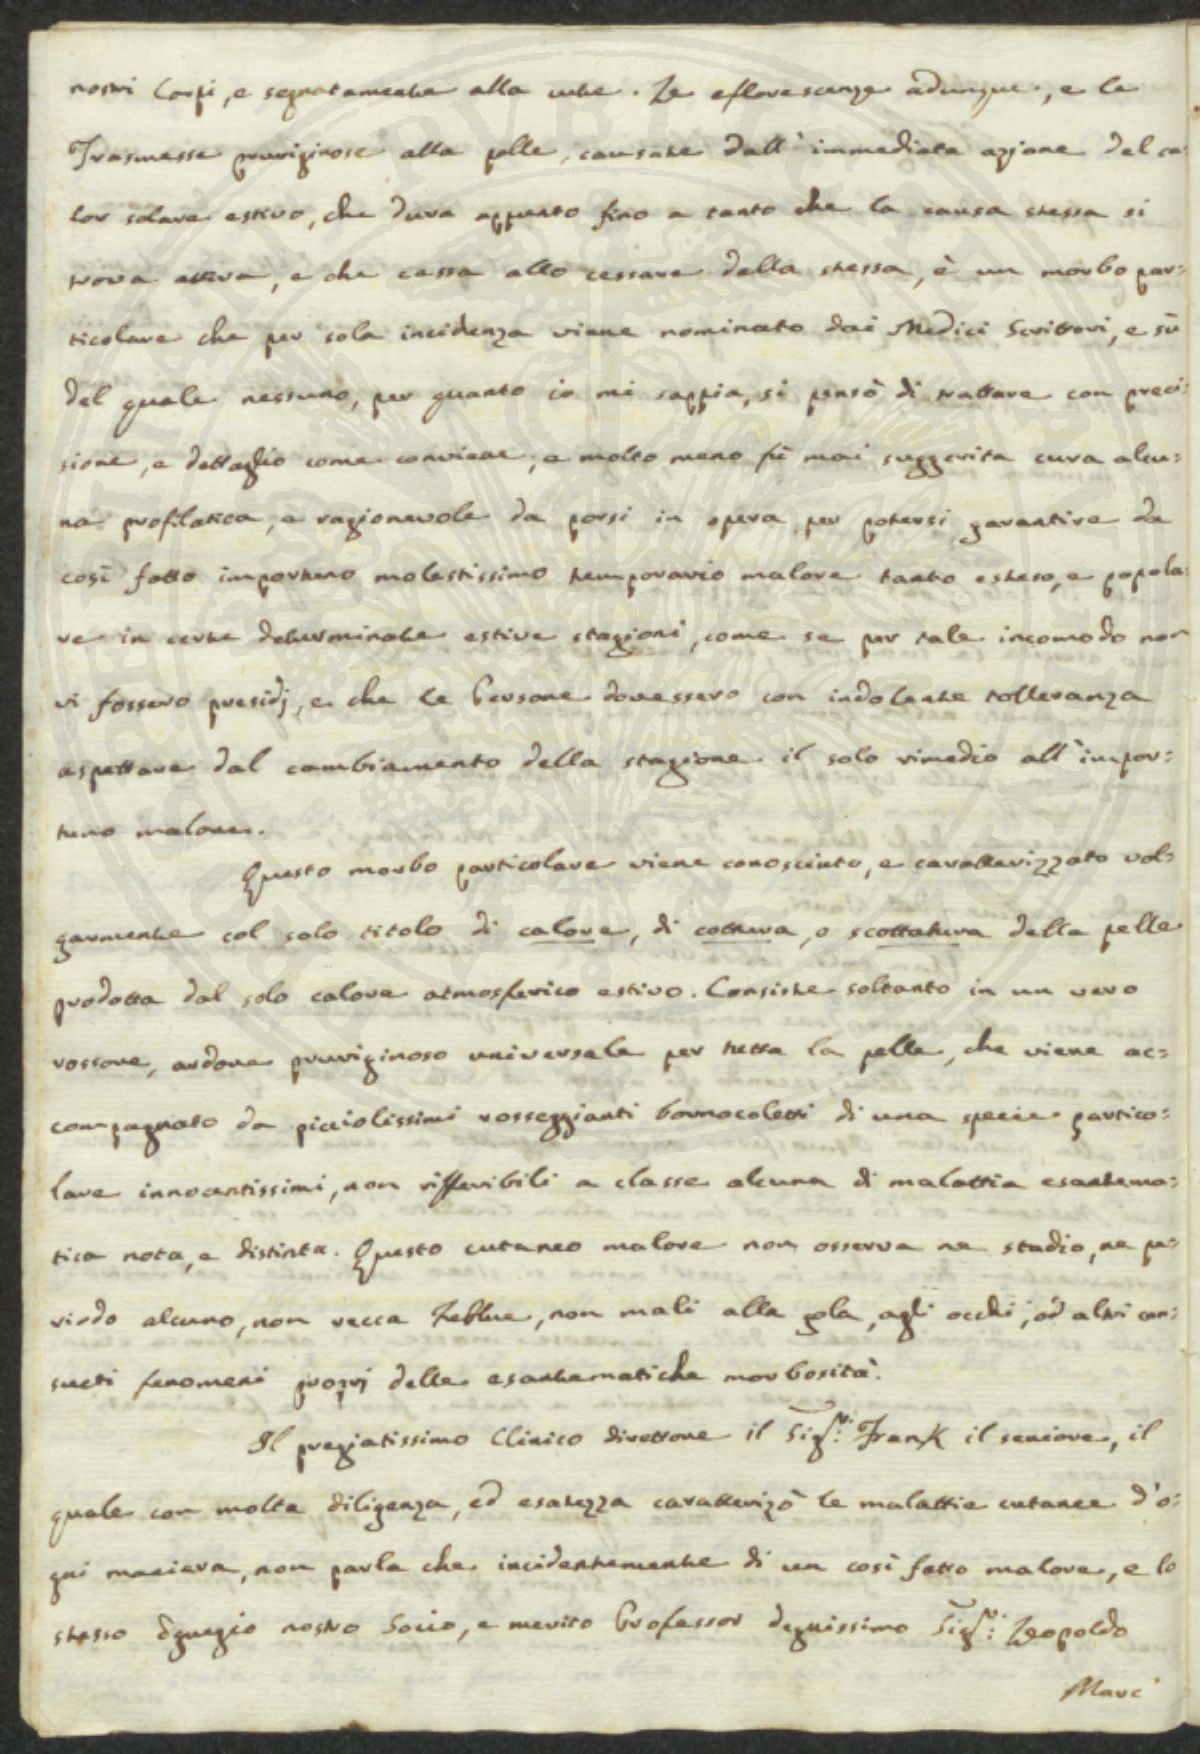 nostri Corpi, e segnatamente alla cute. Le efflorescenze adunque, e le
Trasmesse pruriginose alla pelle, causate dall' immediata azione del ca=
lor solare estivo, che dura appunto fino a tanto che la causa stessa si
trova attiva, e che cessa allo cessare della stessa, è un morbo par=
ticolare che per sola incidenza viene nominato dai Medici Scrittori, e sù
del quale nessuno, per quanto io mi sappia, si pensò di trattare con preci=
sione, e dettaglio come conviene, e molto meno fù mai suggerita cura alcu=
na profilatica, e ragionevole da porsi in opera per potersi garantire da
così fatto importuno molestissimo temporario malore tanto esteso, e popola=
re in certe determinate estive stagioni, come se per tale incomodo non
vi fossero presidj, e che le Persone dovessero con indolente tolleranza
aspettare dal cambiamento della stagione il solo rimedio all' impor=
tuno malore.
Questo morbo particolare viene conosciuto, e caratterizzato vol=
garmente col solo titolo di calore, di cottura, o scottatura della pelle
prodotta dal solo calore atmosferico estivo. Consiste soltanto in un vero
rossore, ardore pruriginoso universale per tutta la pelle, che viene ac=
compagnato da picciolissimi rosseggianti bornocoletti di una specie partico=
lare innocentissimi, non rifferibili a classe alcuna di malattia esantema=
tica nota, e distinta. Questo cutaneo malore non osserva ne stadio, ne pe=
riodo alcuno, non recca febbre, non mali alla gola, agli occhi, od altri con=
sueti fenomeni proprj delle esantematiche morbosità.
Il pregiatissimo Clinico direttore il Sigr: Frank il seniore, il
quale con molta diligenza, ed esatezza caratterizò le malattie cutanee d'o=
gni maniera, non parla che incidentemente di un così fatto malore, e lo
stesso Egregio nostro Socio, e merito Professor degnissimo Sigr: Leopoldo
Marc'